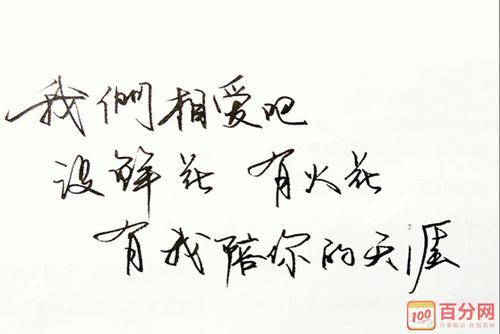 我們相爱吧
没鲜花 有火花
有我陪你的天涯
100
百分网